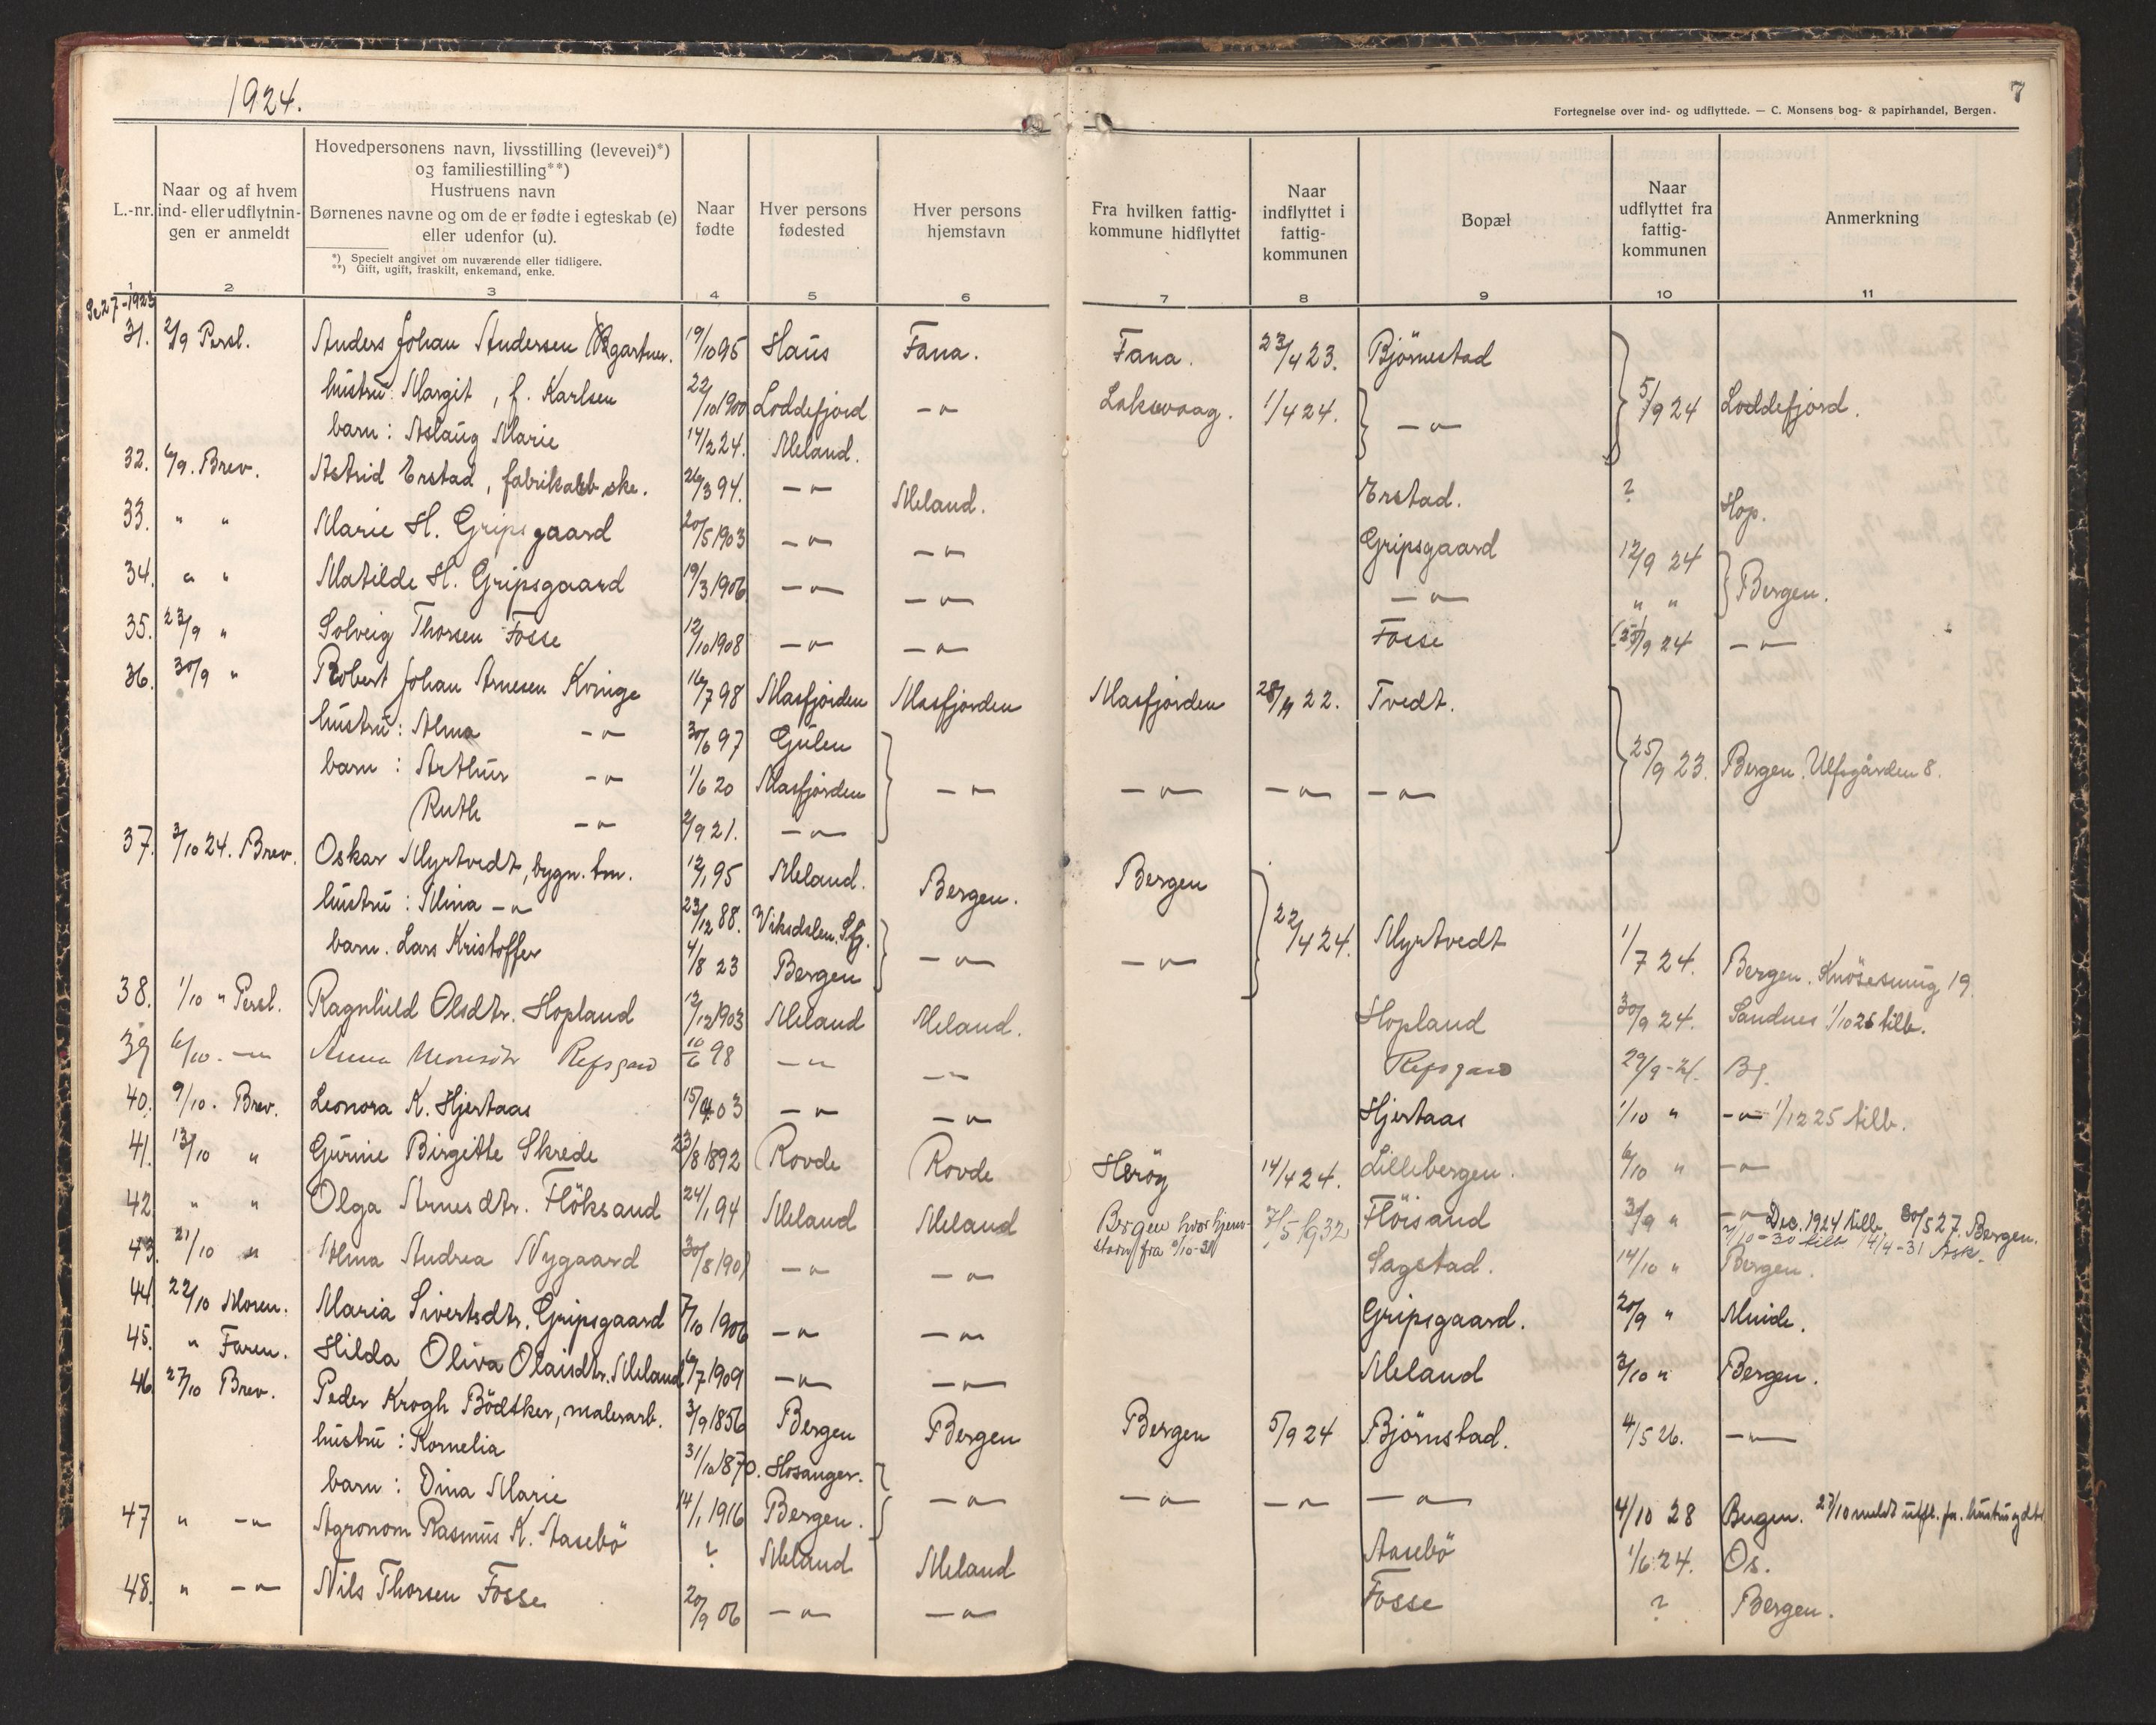 1924.
7
Fortegnelse over ind- og udflyttede. — C. Monsens bog- & papirhandel, Bergen.
L.-nr. | Naar og af hvem ind- eller udflytningen er anmeldt | Hovedpersonens navn, livsstilling (levevei)*) og familiestilling**) Hustruens navn Børnenes navne og om de er fødte i egteskab (e) eller udenfor (u). | Naar fødte | Hver persons fødested | Hver persons hjemstavn | Fra hvilken fattigkommune hidflyttet | Naar indflyttet i fattigkommunen | Bopæl | Naar udflyttet fra fattigkommunen | Anmerkning
*) Specielt angivet om nuværende eller tidligere.
**) Gift, ugift, fraskilt, enkemand, enke.
1 2 3 4 5 6 7 8 9 10 11
Se 27-1923
31. 2/9 Persl. Anders Johan Andersen gartner. 19/10 95 Haus Fana. Fana. 23/4 23. Björnestad
hustru: Margit, f. Karlsen 22/10 1900 Loddefjord —"— Laksevaag. 1/4 24. —"— 5/9 24 Loddefjord.
barn: Aslaug Marie 14/2 24. Meland.
32. 6/9. Brev. Astrid Erstad, fabrikarb.ske. 26/3 94. —"— Meland. Erstad. ? Hop.
33. " " Marie H. Gripsgaard 20/5 1903 —"— —"— Gripsgaard 12/9 24
34. " " Matilde H. Gripsgaard 19/3 1906 —"— —"— —"— " " Bergen.
35. 23/9 " Solveig Thorsen Fosse 12/10 1908 —"— —"— Fosse (25/9 24 —"—
36. 30/9 " Robert Johan Arnesen Kvinge 16/7 98 Masfjorden Masfjorden Masfjorden 28/11 22. Tvedt.
hustru: Alma —"— 30/6 97 Gulen
barn: Arthur —"— 1/6 20 Masfjorden —"— —"— —"— —"— 25/9 23. Bergen. Ulfsgården 8.
Ruth —"— 2/9 21. —"—
37. 3/10 24. Brev. Oskar Myrtvedt, bygn. tm. 12/1 95 Meland. Bergen. Bergen
hustru: Mina —"— 23/12 88. Viksdalen. Sfj.
barn. Lars Kristoffer 4/8 23 Bergen —"— —"— 22/4 24. Myrtvedt 1/7 24. Bergen. Knösesmug 19.
38. 1/10 " Persl. Ragnhild Olsdtr. Hopland 12/12 1903 Meland Meland. Hopland 30/9 24. Sandnes 1/10 25 tilb.
39 6/10. —"— Anna Monsdtr Refsgard 10/6 98 —"— —"— Refsgard 29/9-24. Bg.
40. 9/10. Brev. Leonora K. Hjertaas 15/4 03 —"— —"— Hjertaas 1/10 " —"— 1/12 25 tilb.
41. 13/10 " Gurine Birgitte Skrede 23/8 1892 Rovde Rovde Herøy 14/4 24. Lillebergen. 6/10 " —"—
42 " " Olga Arnesdtr. Flöksand 24/1 94 Meland Meland Bergen hvor hjemstavn fra 7/5 1932 Flöisand 3/9 " —"— Dec. 1924 tilb. 30/5 27. Bergen.
7/10-30 tilb. 14/4-31 Ask.
43. 21/10 " Alma Andrea Nygaard 30/8 1901 —"— —"— Sagstad. 14/10 " Bergen.
44. 22/10 Moren. Maria Sivertsdtr. Gripsgaard 7/10 1906 —"— —"— Gripsgaard. 20/9 " Muide.
45. " Faren. Hilda Oliva Olaisdtr. Meland 6/7 1909 —"— —"— Meland 3/10 " Bergen.
46 27/10 Brev. Peder Krogh Bödtker, malerarb. 3/9 1856 Bergen Bergen Bergen 5/9 24 Björnstad. 4/5 26. —"—
hustru: Kornelia 31/10 1870. Hosanger.
barn: Dina Marie 14/1 1916 Bergen. —"— —"— —"— —"— 4/10 28 Bergen. 27/10 meldt utfl. fra hustru og dtr.
47 " —"— Agronom Rasmus K. Aasebö ? Meland Meland Aasebö 1/6 24. Os.
48. " —"— Nils Thorsen Fosse 20/9 06 —"— —"— Fosse ? Bergen.